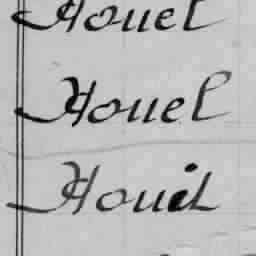 Houel
Houel
Houel